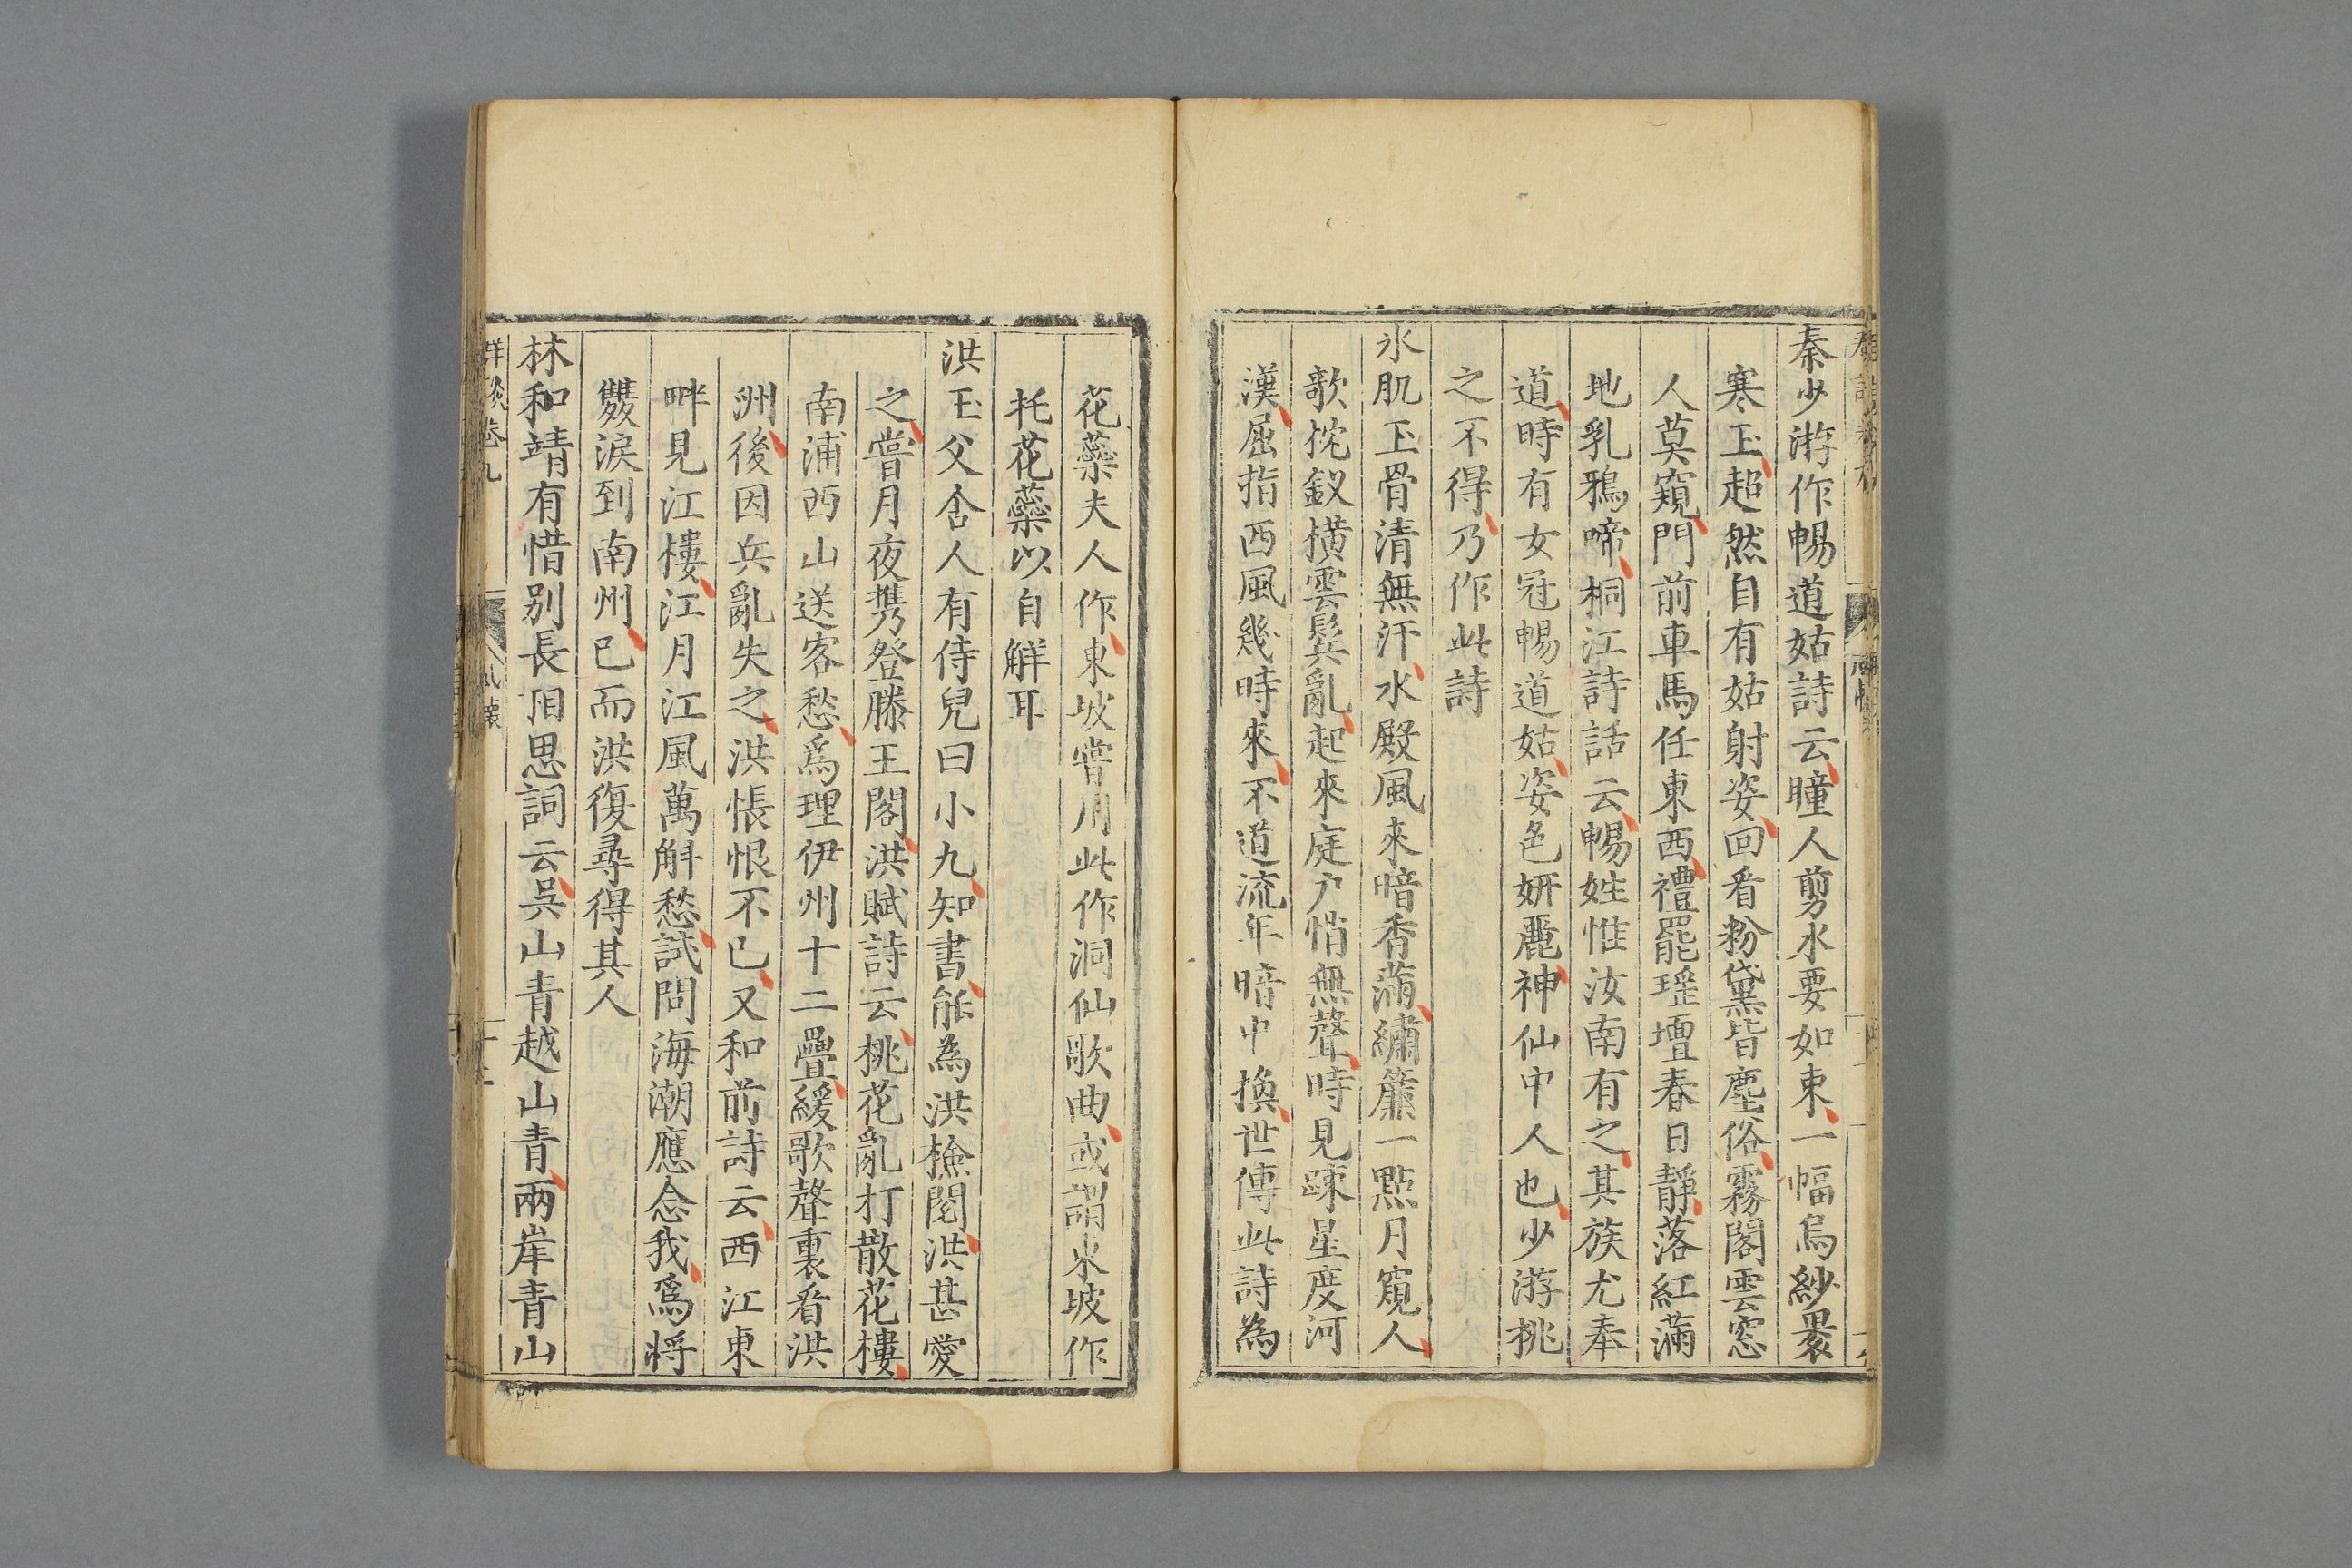 秦少游作暢道姑詩云瞳人剪水要如束一幅烏紗裹
寒玉超然自有姑射姿回看粉黛皆塵俗霧閣雲窓
人莫窺門前車馬任東西禮罷瑤壇春日靜落紅滿
地乳鴉啼桐江詩話云暢姓惟汝南有之其族尤奉
道時有女冠暢道姑姿色妍麗神仙中人也少游挑
之不得乃作此詩
氷肌玉骨清無汗水殿風來暗香滿繡簾一點月窺人
欹枕釵橫雲鬂亂起來庭户悄無聲時見踈星度河
漢屈指西風幾時來不道流年暗中換世傳此詩為
花蘂夫人作東坡嘗用此作洞仙歌曲或謂東坡作
托花蘂以自觧耳
洪玉父舍人有侍兒曰小九知書能為洪檢閱洪甚愛
之嘗月夜携登滕王閣洪賦詩云桃花亂打散花樓
南浦西山送客愁爲理伊州十二疊緩歌聲裏看洪
洲後因兵亂失之洪悵恨不已又和前詩云西江東
畔見江樓江月江風萬斛愁試問海潮應念我爲將
雙淚到南州已而洪復尋得其人
林和靖有惜别長相思詞云吳山青越山青兩岸青山
群談卷九